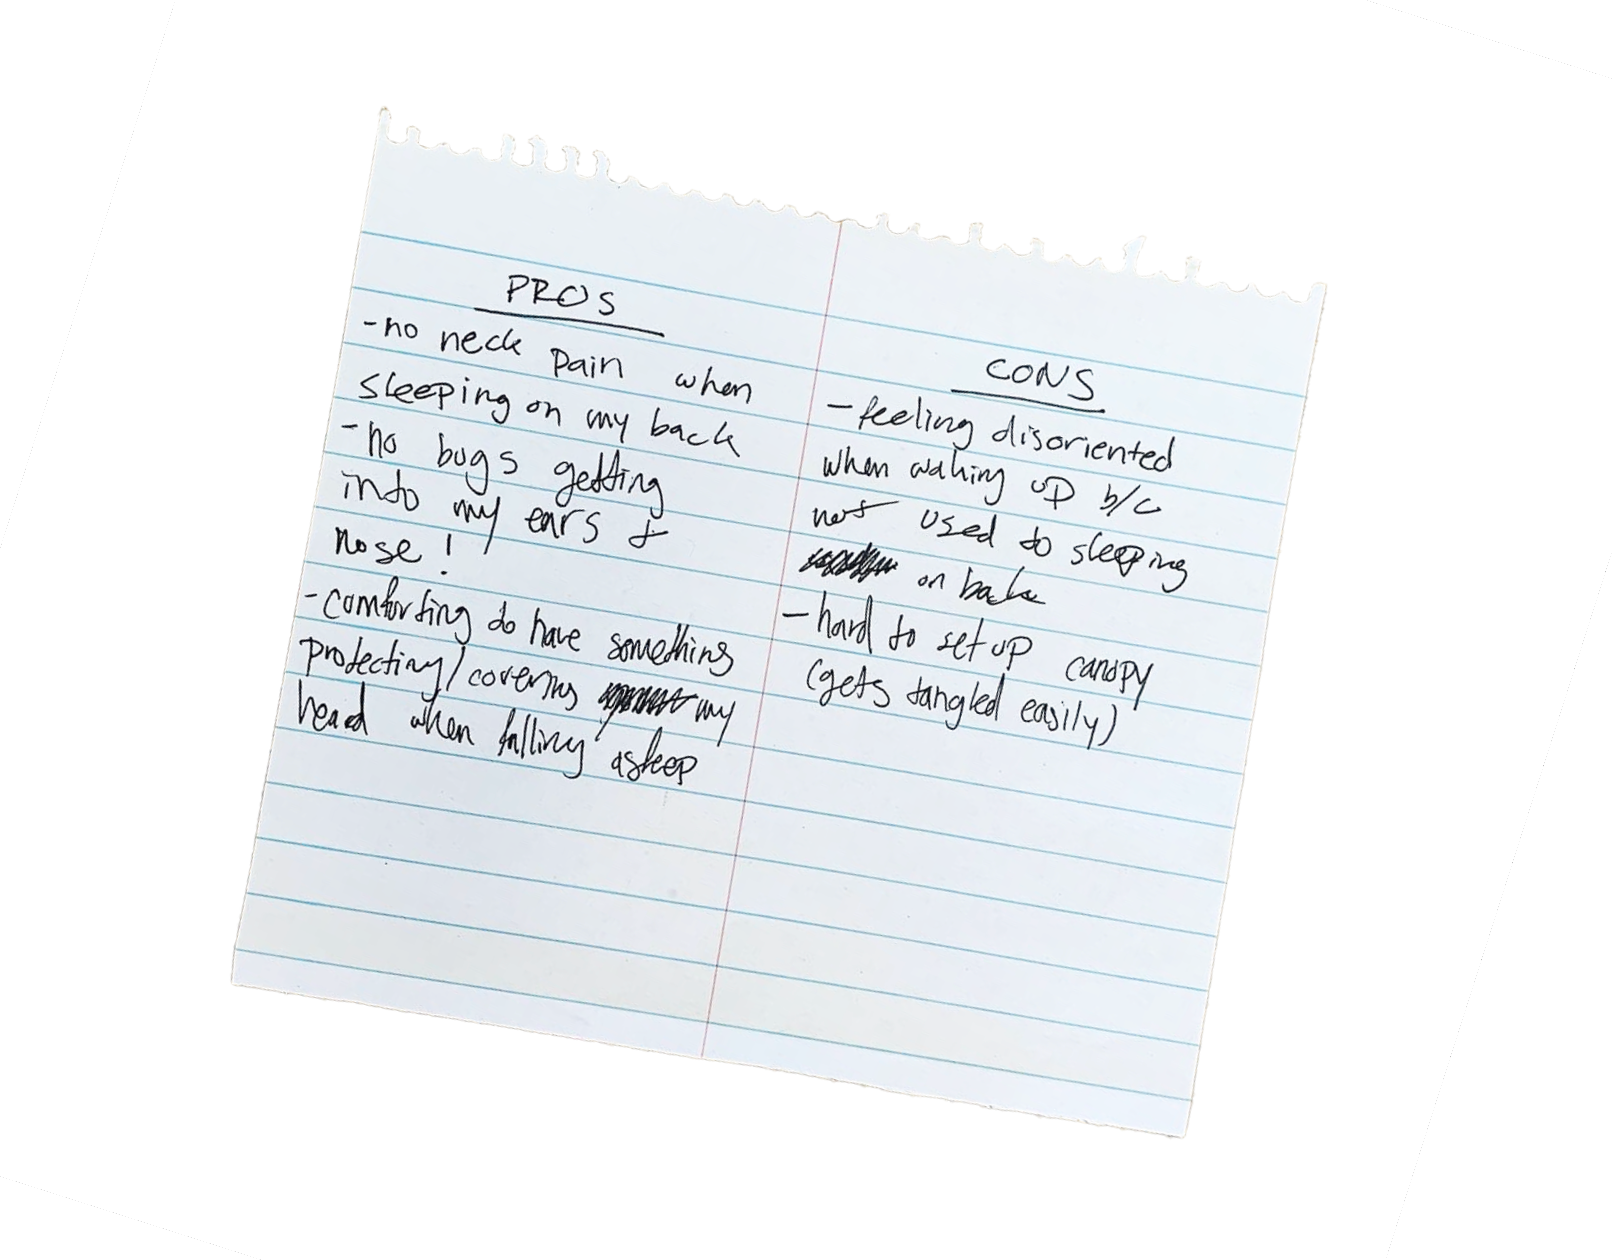 PROS
-no neck pain when
sleeping on my back
-no bugs getting
into my ears &
nose!
-comforting to have something
protecting/covering my
head when falling asleep
CONS
-feeling disoriented
when waking up b/c
not used to sleeping
on back
-hard to set up canopy
(gets tangled easily)